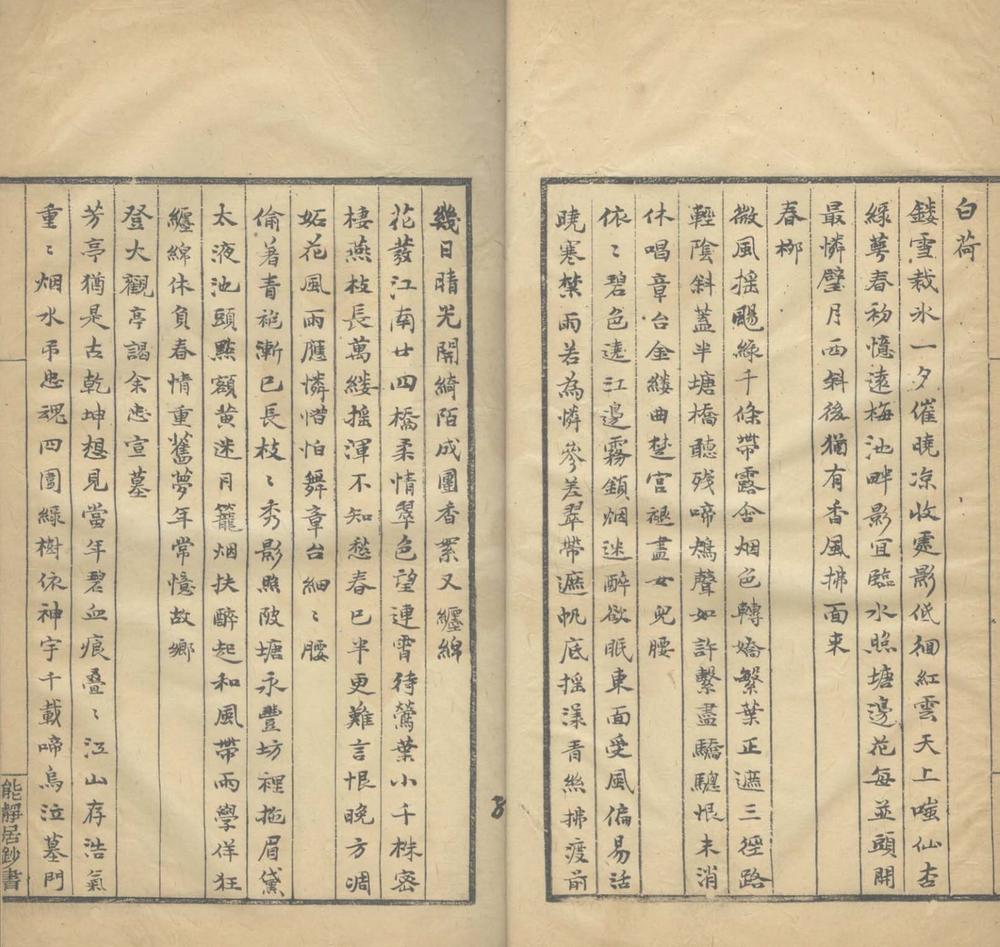 白荷
鏤雪裁冰一夕催曉凉收霽影低徊紅雲天上嗤仙杏
綠萼春初憶遠梅池畔影宜臨水照塘邊花每並頭開
最憐璧月西斜後猶有香風拂面來
春柳
微風搖颺綠千條帶露含烟色轉嬌繁葉正遮三徑路
輕陰斜蓋半塘橋聽殘啼鴂聲如許繫盡驕驄恨未消
休唱章台金縷曲楚宮褪盡女兒腰
依〻碧色遶江邊霧鎖烟迷醉欲眠東面受風偏易活
曉寒禁雨若為憐參差翠帶遮帆底搖漾青絲拂渡前
幾日晴光開綺陌成團香絮又纏綿
花發江南廿四橋柔情翠色望連霄待鶯葉小千株密
棲燕枝長萬縷搖渾不知愁春已半更難言恨晚方凋
妬花風雨應憐惜怕舞章台細〻腰
偷著青袍漸已長枝〻秀影照陂塘永豐坊裡拖眉黛
太液池頭點額黃迷月籠烟扶醉起和風帶雨學佯狂
纏綿休負春情重舊夢年常憶故鄉
登大觀亭謁余忠宣墓
芳亭猶是古乾坤想見當年碧血痕疊〻江山存浩氣
重〻烟水弔忠魂四圍綠樹依神宇千載啼烏泣墓門
能靜居鈔書